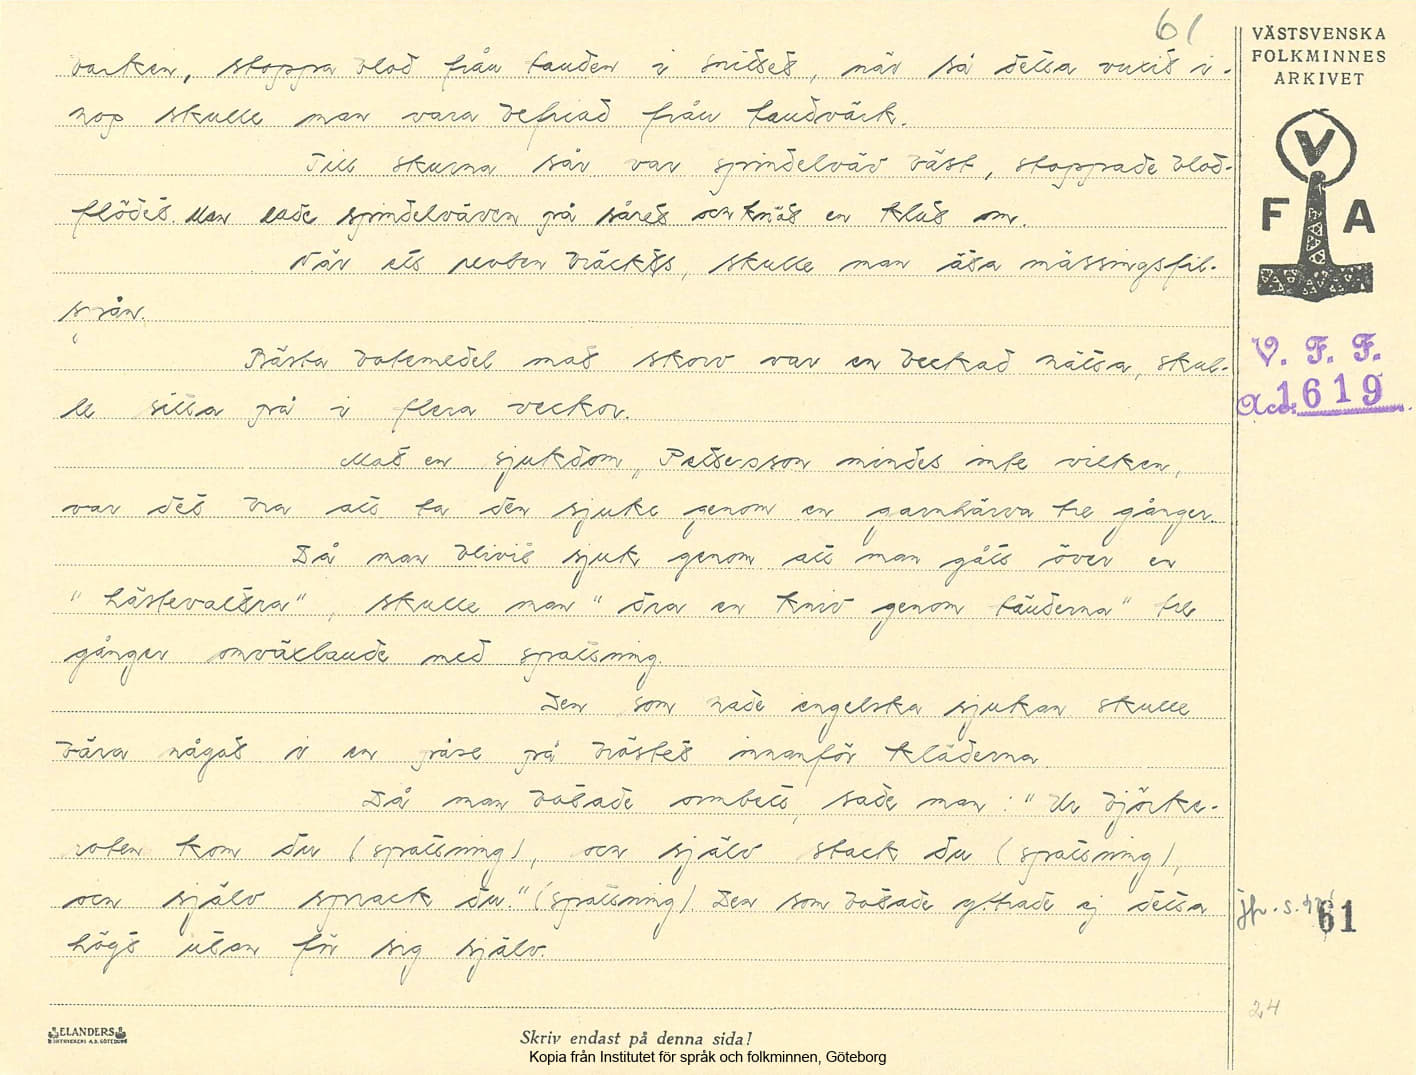 61
barken, stoppa blod från tanden i snittet, när så detta vuxit i-
hop skulle man vara befriad från tandvärk.
Till skurna sår var spindelväv bäst, stoppade blod-
flödet. Man lade spindelväven på såret och knöt en klut om.
När ett revben bräckts, skulle man äta mässingsfil-
spån.
Bästa botemedel mot skorv var en beckad hätta, skul-
le sitta på i flera veckor.
Mot en sjukdom, Pettersson mindes inte vilken,
var det bra att ta den sjuke genom en garnhärva tre gånger.
Då man blivit sjuk genom att man gått över en
"hästevältra", skulle man "dra en kniv genom tänderna" tre
gånger omväxlande med spottning.
Den som hade engelska sjukan skulle
bära något i en påse på bröstet innanför kläderna
Då man botade ormbett, sade man: "Ur björke-
roten kom du (spottning), och själv stack du (spottning),
och själv sprack du." (spottning). Den som botade yttrade ej detta
högt utan för sig själv.
VÄSTSVENSKA
FOLKMINNES
ARKIVET
V
F A
V. F. F.
Acc. 1619
jfr. s.
61
24
ELANDERS
Skriv endast på denna sida!
Kopia från Institutet för språk och folkminnen, Göteborg